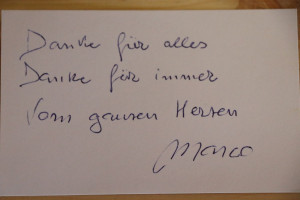 Danke für alles
Danke für immer
Vom ganzen Herzen